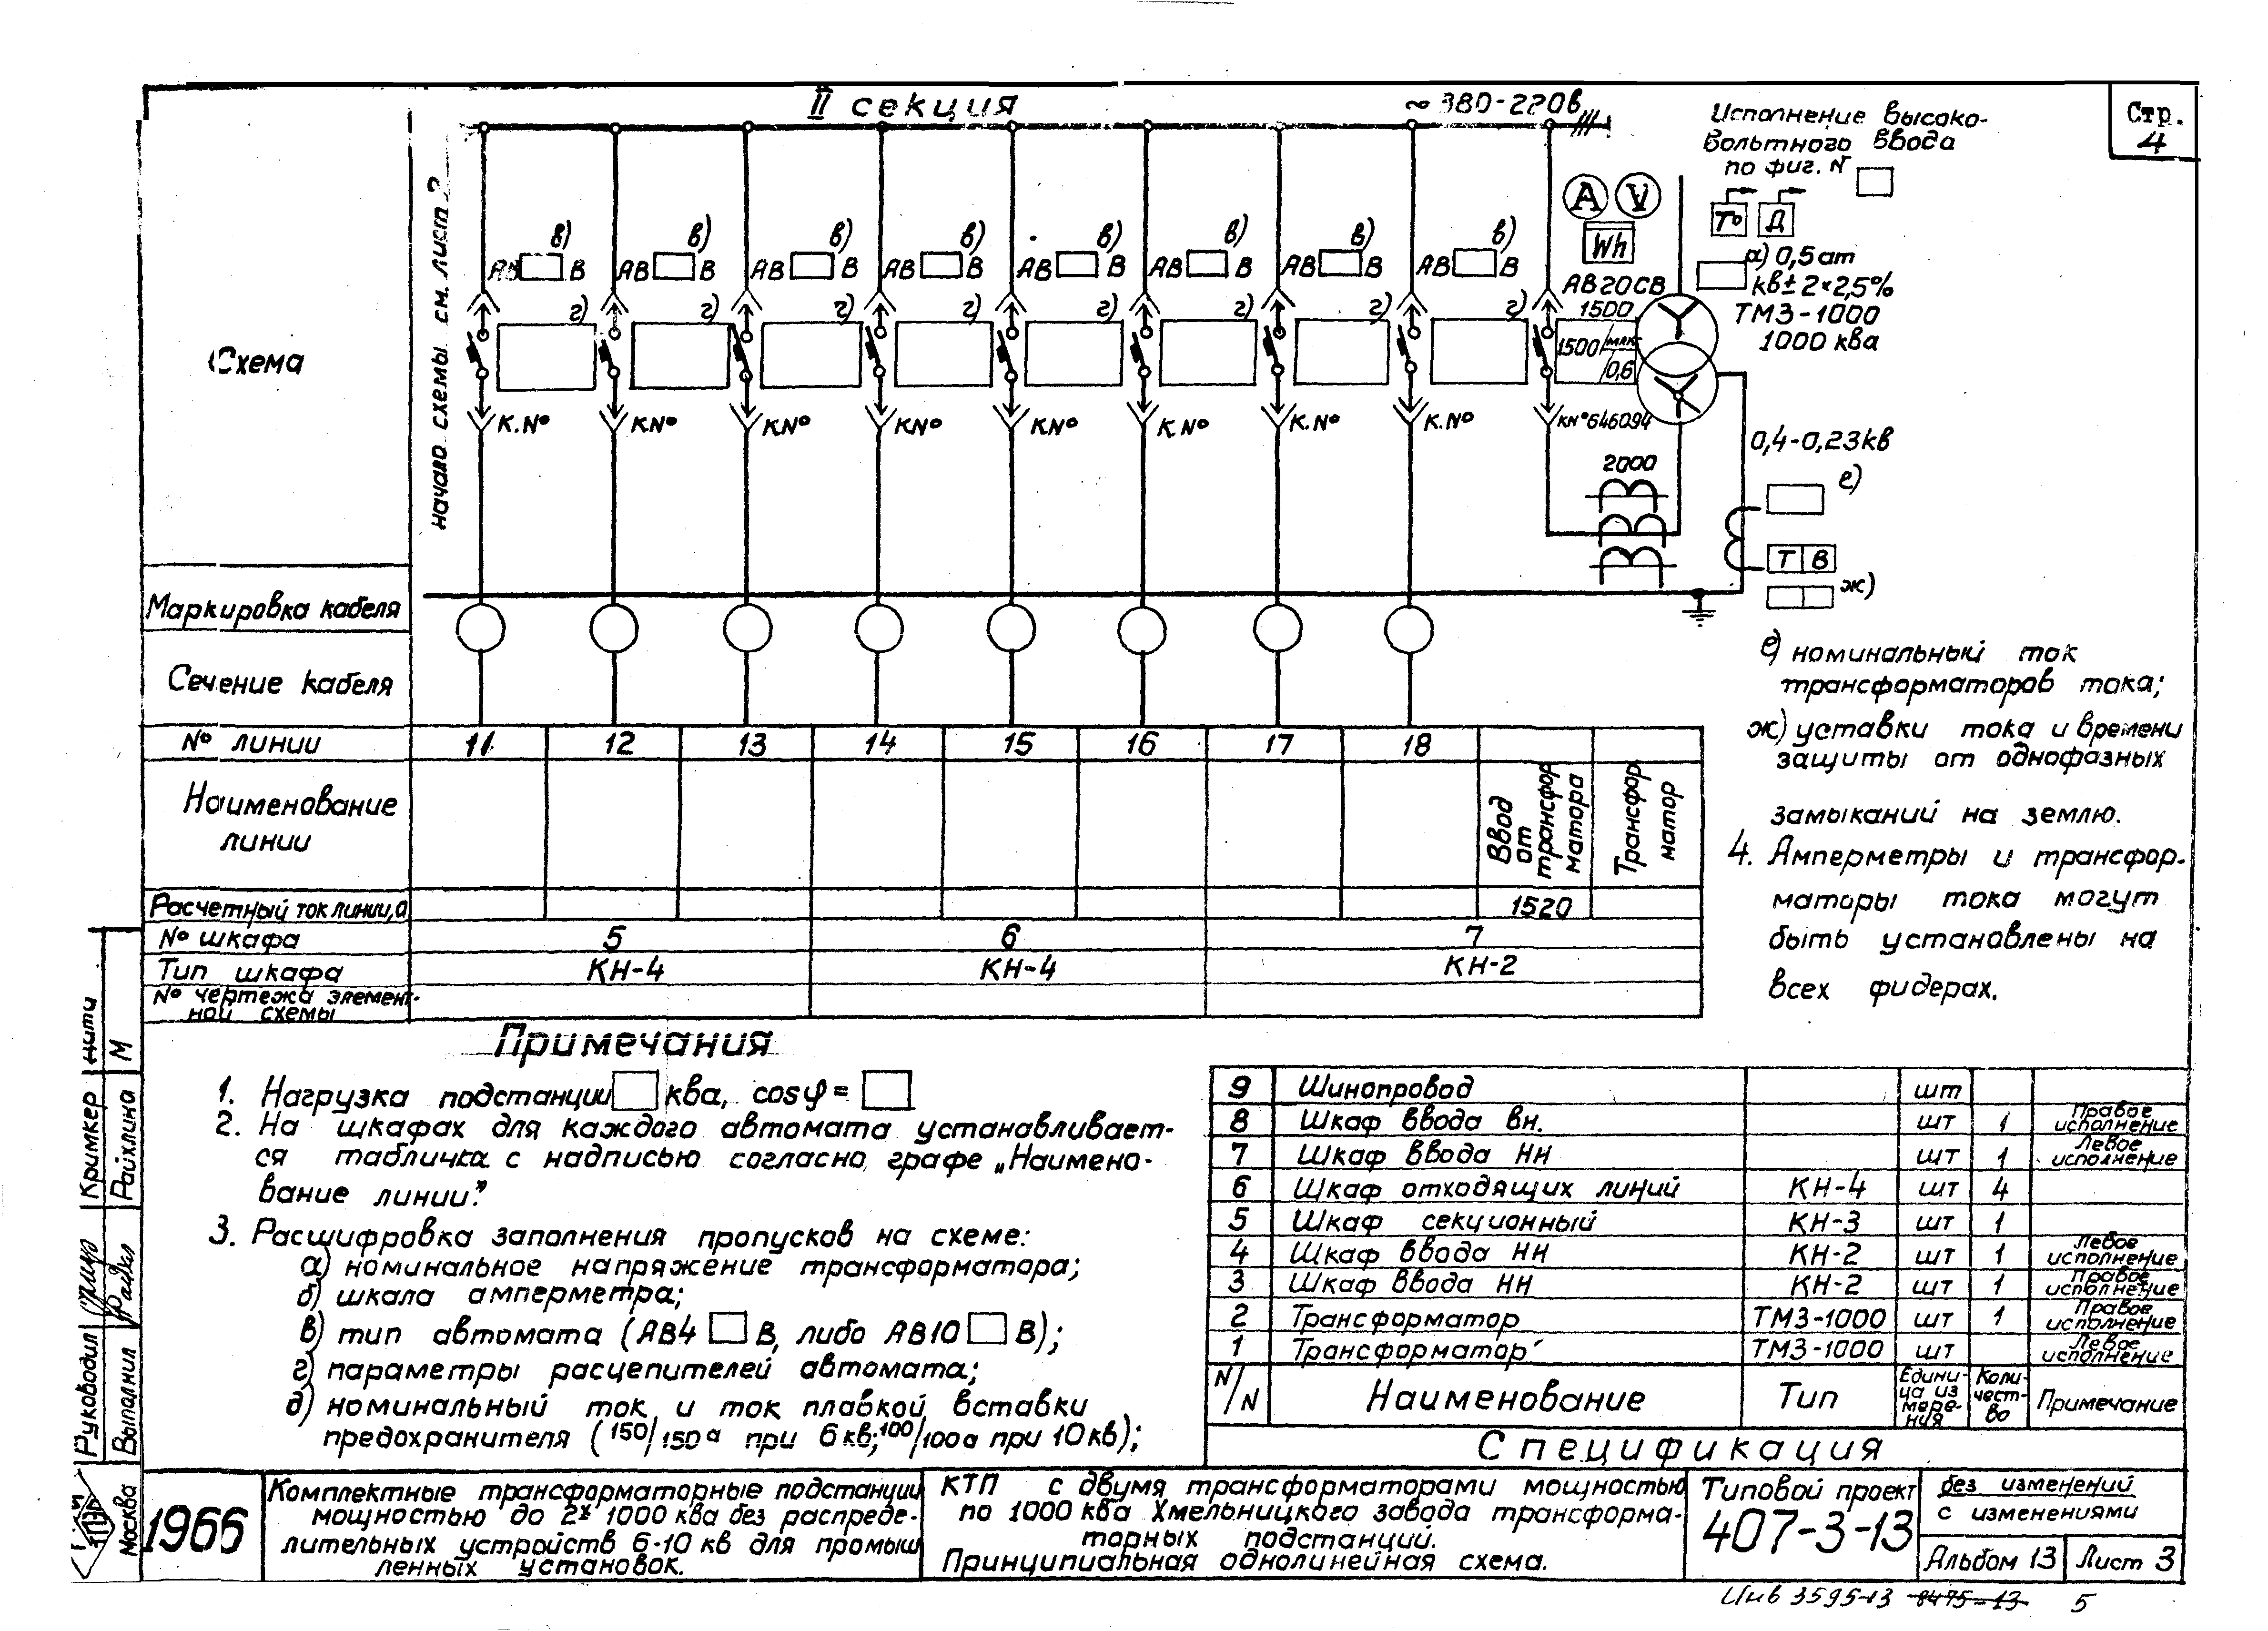 II секция
~ 380-220в
Стр.
4
Исполнение высоко-
вольтного ввода
по фиг. N
начало схемы см. лист 2
A V
Wh
Т° Д
в) в) в) в) в) в) в) в)
АВ В АВ В АВ В АВ В АВ В АВ В АВ В АВ В
г) г) г) г) г) г) г) г)
АВ20СВ
1500
1500/мак
0,6
а) 0,5ат
кв±2×2,5%
ТМЗ-1000
1000 ква
Схема
К.N° КN° КN° КN° К.N° К N° К.N° К.N° КN°646094
0,4-0,23кв
2000
е)
Т В
ж)
Маркировка кабеля
Сечение кабеля
N° линии 11 12 13 14 15 16 17 18
Наименование
линии
Ввод
от
трансфор
матора
Трансфор
матор
Расчетный ток линии, а 1520
N° шкафа 5 6 7
Тип шкафа КН-4 КН-4 КН-2
N° чертежа элемент-
ной схемы
е) номинальный ток
трансформаторов тока;
ж) уставки тока и времени
защиты от однофазных
замыканий на землю.
4. Амперметры и трансфор-
маторы тока могут
быть установлены на
всех фидерах.
Примечания
1. Нагрузка подстанции ква, cosφ=
2. На шкафах для каждого автомата устанавливает-
ся табличка с надписью согласно графе „Наимено-
вание линии".
3. Расшифровка заполнения пропусков на схеме:
а) номинальное напряжение трансформатора;
б) шкала амперметра;
в) тип автомата (АВ4 В, либо АВ10 В);
г) параметры расцепителей автомата;
д) номинальный ток и ток плавкой вставки
предохранителя (150/150а при 6кв; 100/100а при 10кв);
9 Шинопровод шт
8 Шкаф ввода вн. шт 1 Правое исполнение
7 Шкаф ввода НН шт 1 Левое исполнение
6 Шкаф отходящих линий КН-4 шт 4
5 Шкаф секционный КН-3 шт 1
4 Шкаф ввода НН КН-2 шт 1 Левое исполнение
3 Шкаф ввода НН КН-2 шт 1 Правое исполнение
2 Трансформатор ТМЗ-1000 шт 1 Правое исполнение
1 Трансформатор ТМЗ-1000 шт Левое исполнение
N/N Наименование Тип Едини-ца из мере-ния Коли-чест-во Примечание
Спецификация
Руководил Кримкер
Выполнил Райхлина
М
Москва
1966
Комплектные трансформаторные подстанции
мощностью до 2× 1000 ква без распреде-
лительных устройств 6-10 кв для промыш
ленных установок.
КТП с двумя трансформаторами мощностью
по 1000 ква Хмельницкого завода трансформа-
торных подстанций.
Принципиальная однолинейная схема.
Типовой проект
407-3-13
без изменений
с изменениями
Альбом 13
Лист 3
Инв 3595-13 8475-13 5